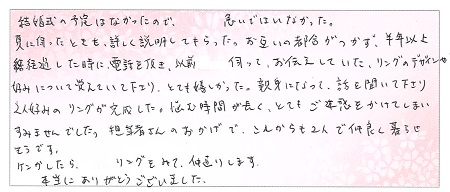 結婚式の予定はなかったので、 急いではいなかった。
夏に伺ったときも、詳しく説明してもらった。お互いの都合がつかず、半年以上
経過した時に、電話を頂き、以前 伺って、お伝えしていた、リングのデザインや
好みについて覚えていて下さり、とても嬉しかった。親身になって、話を聞いて下さり
2人好みのリングが完成した。悩む時間が長く、とてもご迷惑をかけてしまい
すみませんでした。担当者さんのおかげで、これからも2人で仲良く暮らせ
そうです。
ケンカしたら、 リングをみて、仲直りします。
本当にありがとうございました。